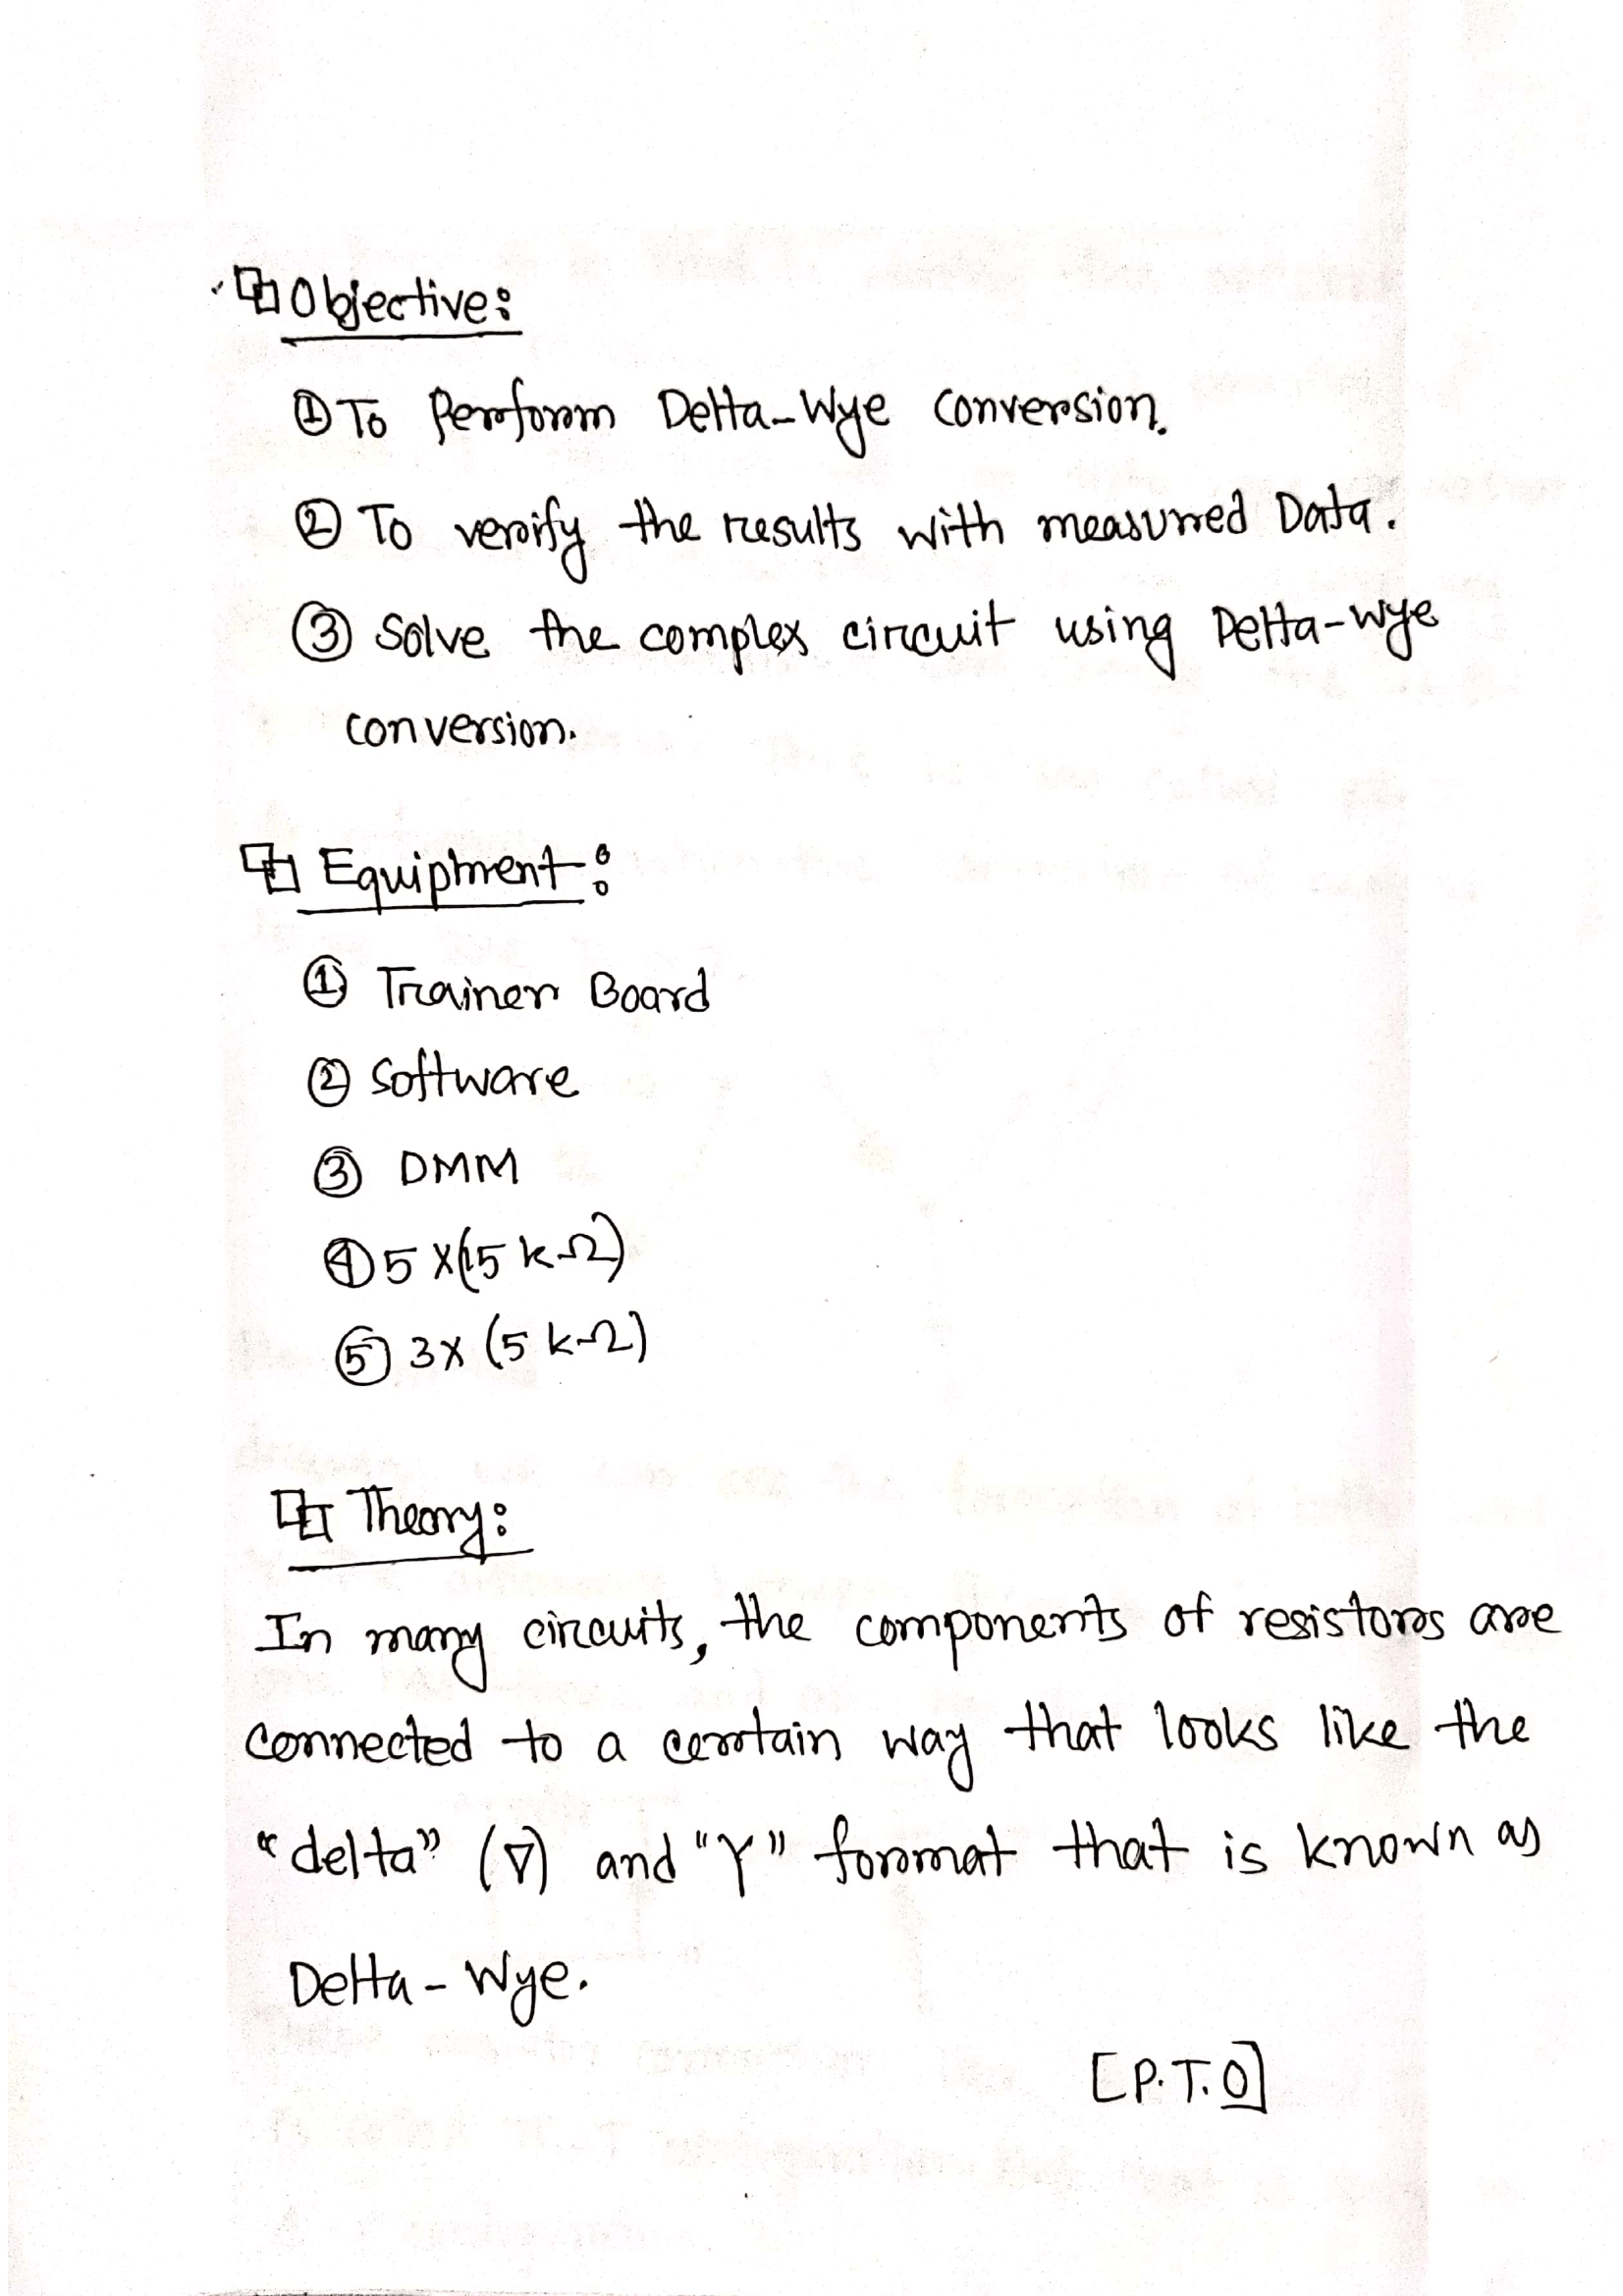 Objective:
① To Perform Delta-Wye conversion.
② To verify the results with measured Data.
③ Solve the complex circuit using Delta-Wye
conversion.
Equipment:
① Trainer Board
② Software
③ DMM
④ 5 x (15 kΩ)
⑤ 3x (5 kΩ)
Theory:
In many circuits, the components of resistors are
connected to a certain way that looks like the
"delta" (∇) and "Y" format that is known as
Delta-Wye.
[P.T.O]